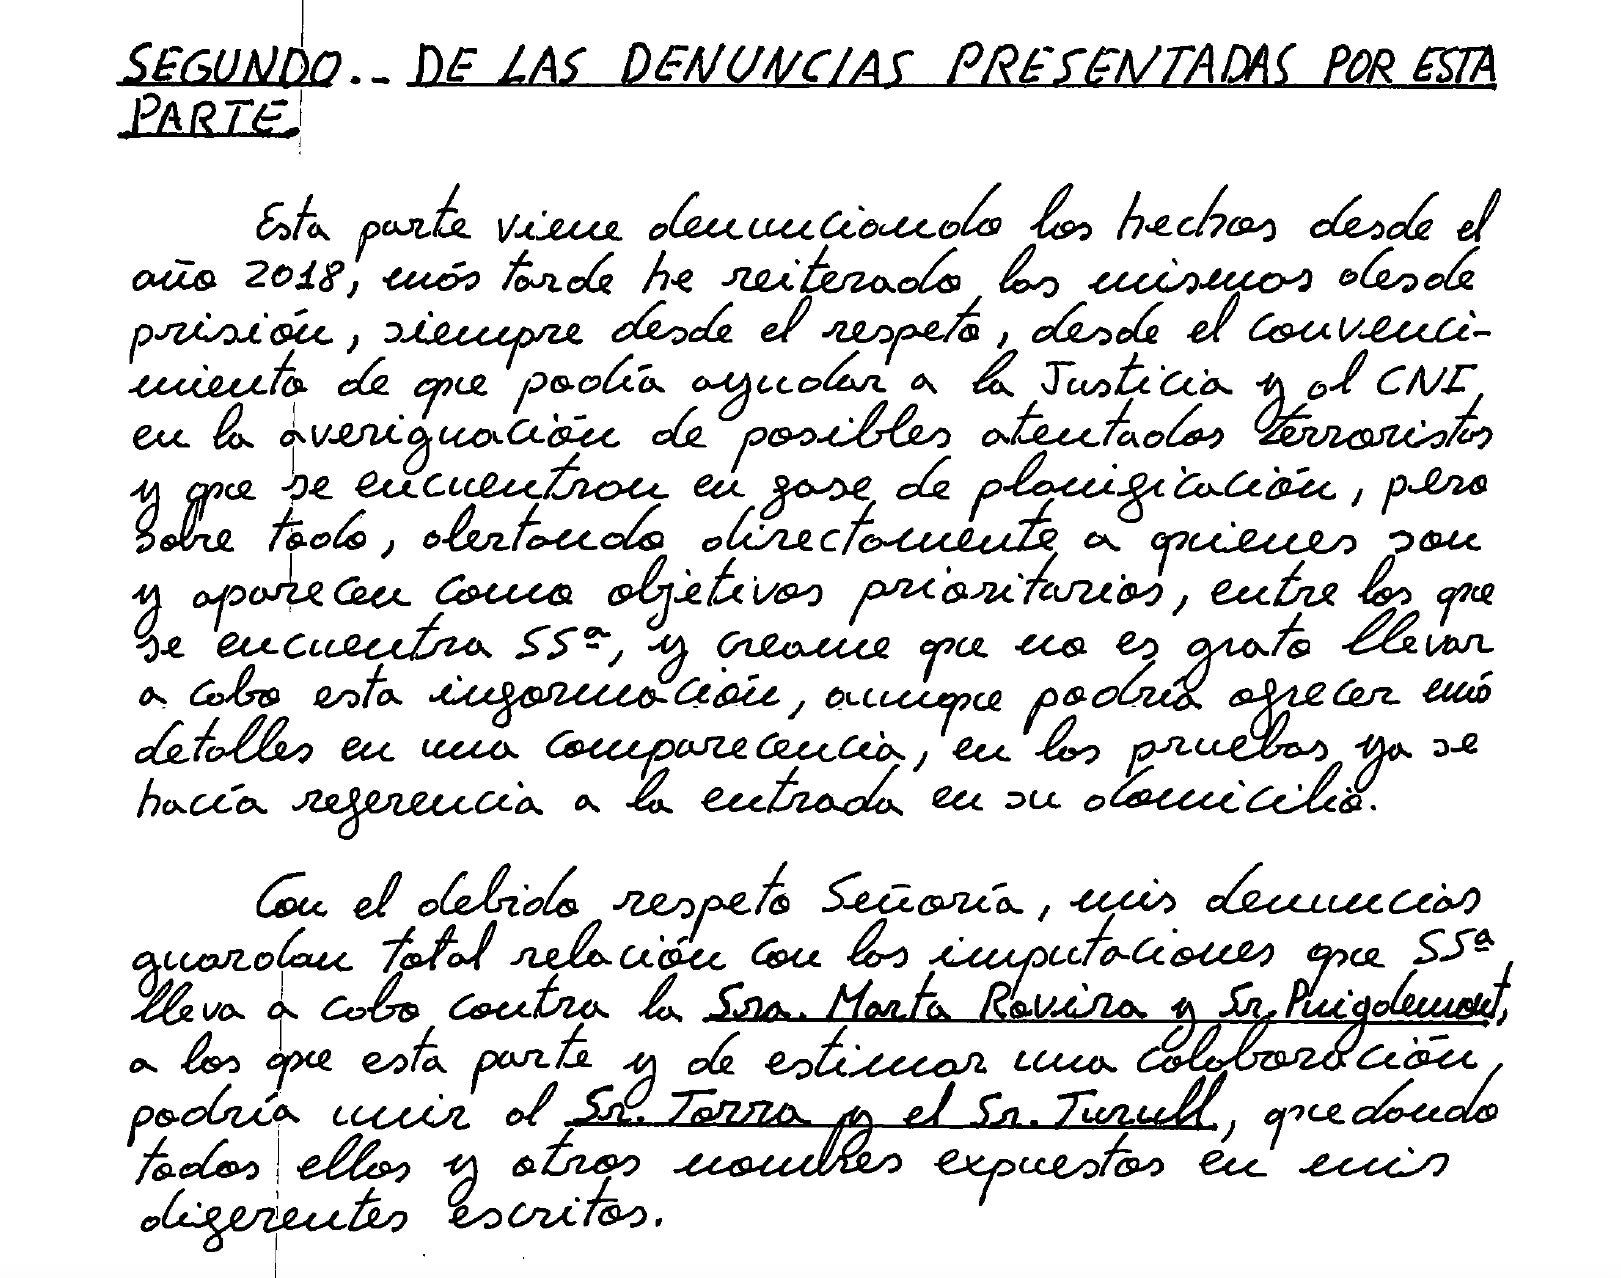 SEGUNDO.- DE LAS DENUNCIAS PRESENTADAS POR ESTA
PARTE.
Esta parte viene denunciando los hechos desde el
año 2018, más tarde he reiterado los mismos desde
prisión, siempre desde el respeto, desde el convenci-
miento de que podía ayudar a la Justicia y al CNI,
en la averiguación de posibles atentados terroristas
y que se encuentran en fase de planificación, pero
sobre todo, alertando directamente a quienes son
y aparecen como objetivos prioritarios, entre los que
se encuentra SSª, y creame que no es grato llevar
a cabo esta información, aunque podría ofrecer má
detalles en una comparecencia, en las pruebas ya se
hacía referencia a la entrada en su domicilio.
Con el debido respeto Señoría, mis denuncias
guardan total relación con las imputaciones que SSª,
lleva a cabo contra la Sra. Marta Rovira y Sr. Puigdemont,
a los que esta parte y de estimar una colaboración,
podría unir al Sr. Torra y el Sr. Turull, quedando
todos ellos y otros nombres expuestos en mis
diferentes escritos.